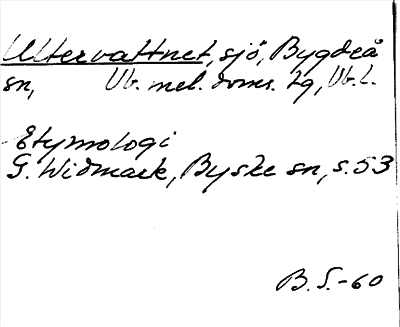 Ultervattnet, sjö, Bygdeå
sn, Vb. mel. doms. tg, Vb. l.
Etymologi
G. Widmark, Byske sn, s. 53
B. S.-60